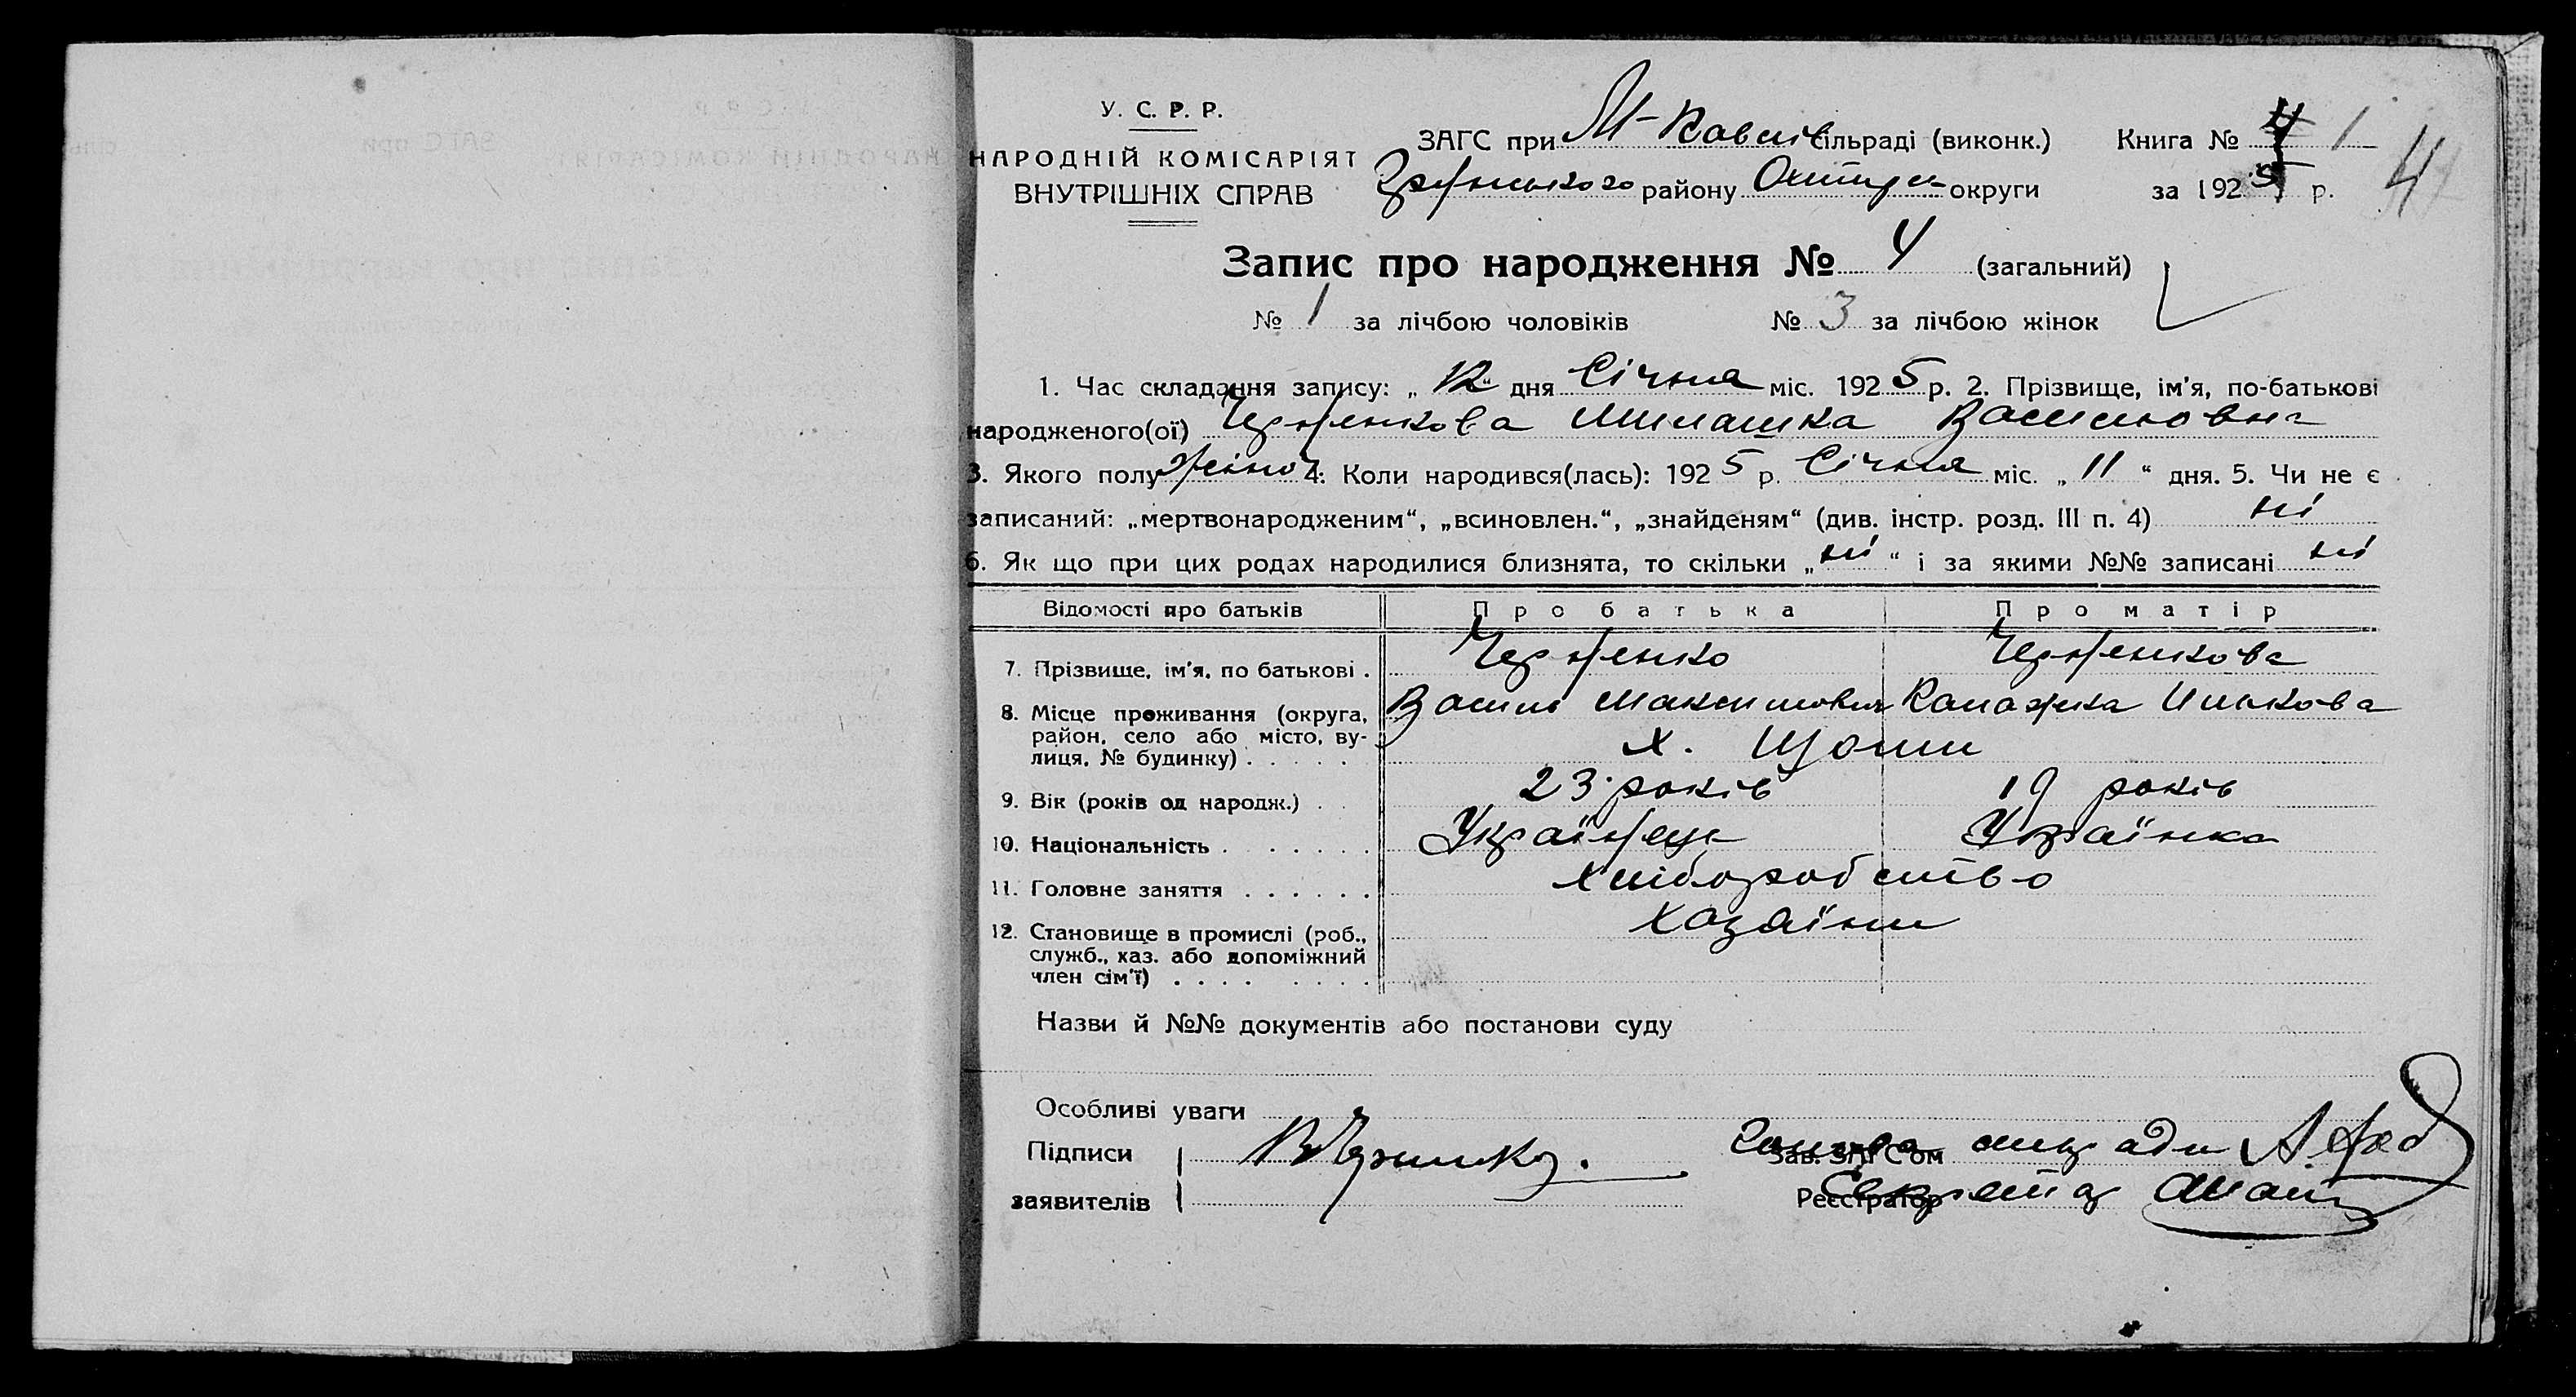 У. С. Р. Р.
НАРОДНІЙ КОМІСАРІЯТ
ВНУТРІШНІХ СПРАВ
ЗАГС при М-Павлів сільраді (виконк.) Книга № 1
району Охтирс округи за 1925 р. 4
Запис про народження № 4 (загальний)
№ 1 за лічбою чоловіків № 3 за лічбою жінок
1. Час складання запису: „ 12 “ дня Січня міс. 1925 р. 2. Прізвище, ім'я, по-батькові
народженого(ої) Черненкова Милашка Василовна
3. Якого полу жіноч 4. Коли народився(лась): 1925 р. Січня міс. „ 11 “ дня. 5. Чи не є
записаний: „мертвонародженим“, „всиновлен.“, „знайденям“ (див. інстр. розд. III п. 4) ні
6. Як що при цих родах народилися близнята, то скільки „ ні “ і за якими №№ записані ні
Відомості про батьків Про батька Про матір
7. Прізвище, ім'я, по батькові . Черненко Черненкова
Василь Максимович Илькова
8. Місце проживання (округа, район, село або місто, вулиця, № будинку) . . . . . х.
9. Вік (років од народж.) . . 23 років 19 років
10. Національність . . . . . . . Українець Українка
11. Головне заняття . . . . . . Хліборобство
12. Становище в промислі (роб., служб., хаз. або допоміжний член сім'ї) . . . . . . . . Хазаїни
Назви й №№ документів або постанови суду
Особливі уваги
Підписи
заявителів
Зав. ЗАГС'ом Голова сільради
Реєстратор Секретар